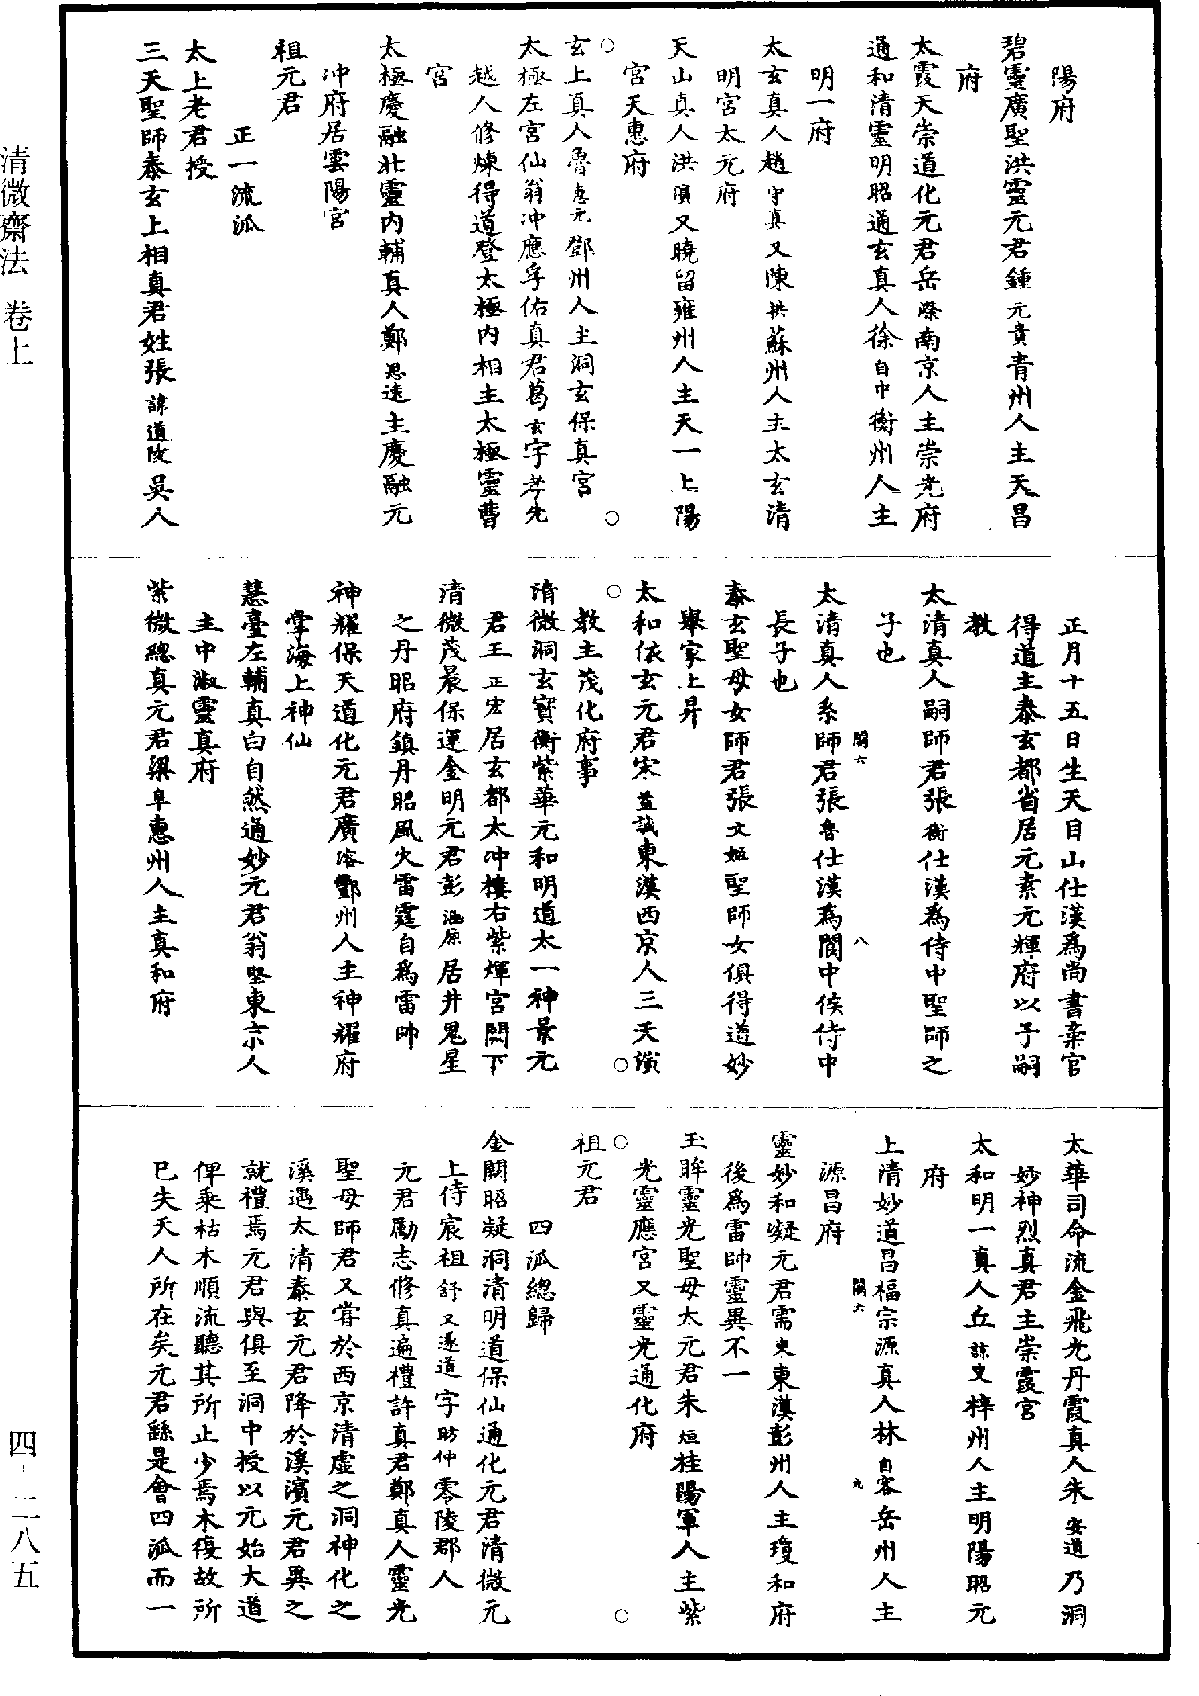 陽府
碧靈廣聖洪靈元君鍾元賁青州人主天昌
府
太霞天崇道化元君岳際南京人主崇光府
通和清靈明昭通玄真人徐自中衡州人主
明一府
太玄真人趙守真又陳拱蘇州人主太玄清
明宮太元府
天山真人洪 又曉留雍州人主天一上陽
宮天惠府
玄上真人魯惠元鄧州人主洞玄保真宮
太極左宮仙翁冲應孚佑真君葛玄字孝先
越人修煉得道登太極內相主太極靈曹
宮
太極慶融壯靈內輔真人鄭思遠主慶融元
冲府居雲陽宮
祖元君
正一流派
太上老君授
三天聖師泰玄上相真君姓張諱道陵吳人
正月十五日生天目山仕漢為尚書棄官
得道主泰玄都省居元素元輝府以子嗣
教
太清真人嗣師君張衡仕漢為侍中聖師之
子也
太清真人系師君張魯仕漢為閬中侯侍中
長子也
泰玄聖母女師君張文姬聖師女俱得道妙
舉家上昇
太和依玄元君宋益誠東漢西京人三天演
教主茂化府事
清微洞玄寶衡紫華元和明道太一神景元
君王正宏居玄都太冲樓右紫煇宮闕下
清微茂晨保運金明元君彭 居井鬼星
之丹昭府鎮丹昭風火雷霆自為雷帥
神耀保天道化元君廣 州人主神耀府
掌海上神仙
慧臺左輔真白自然通妙元君翁堅東京人
主中淑靈真府
紫微總真元君梁阜惠州人主真和府
太華司命流金飛光丹霞真人朱安道乃洞
妙神烈真君主崇霞宮
太和明一真人丘 梓州人主明陽昭元
府
上清妙道昌福宗源真人林自容岳州人主
源昌府
靈妙和凝元君需 東漢彭州人主瓊和府
後為雷帥靈異不一
玉眸靈光聖母太元君朱烜桂陽軍人主紫
光靈應宮又靈光通化府
祖元君
四派總歸
金闕昭凝洞清明道保仙通化元君清微元
上侍宸祖舒又遂道字昉仲零陵郡人
元君勵志修真遍禮許真君鄭真人靈光
聖母師君又嘗於西京清虛之洞神化之
溪遇太清泰玄元君降於溪濱元君異之
就禮焉元君與俱至洞中授以元始大道
俾乘枯木順流聽其所止少焉木復故所
已失天人所在矣元君繇是會四派而一
清微齋法 卷上
四-二八五